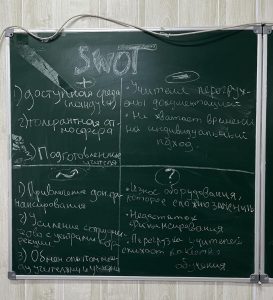 SWOT
+
1) доступная среда
(пандус)
2) толерантная ат-
мосфера
3) Подготовленные
учителя
-
• Учителя перегруж-
ены документацией
• Не хватает времени
на индивидуальный
подход
1) Привлечение доп. фи-
нансирования
2) Усиление сотрудни-
чества с центрами корр-
екции
3) Обмен опытом меж-
ду учителями
?
• Износ оборудования,
которое сложно заменить
• Недостаток
финансирования
• Перегрузка учителей
снижает качество
обучения